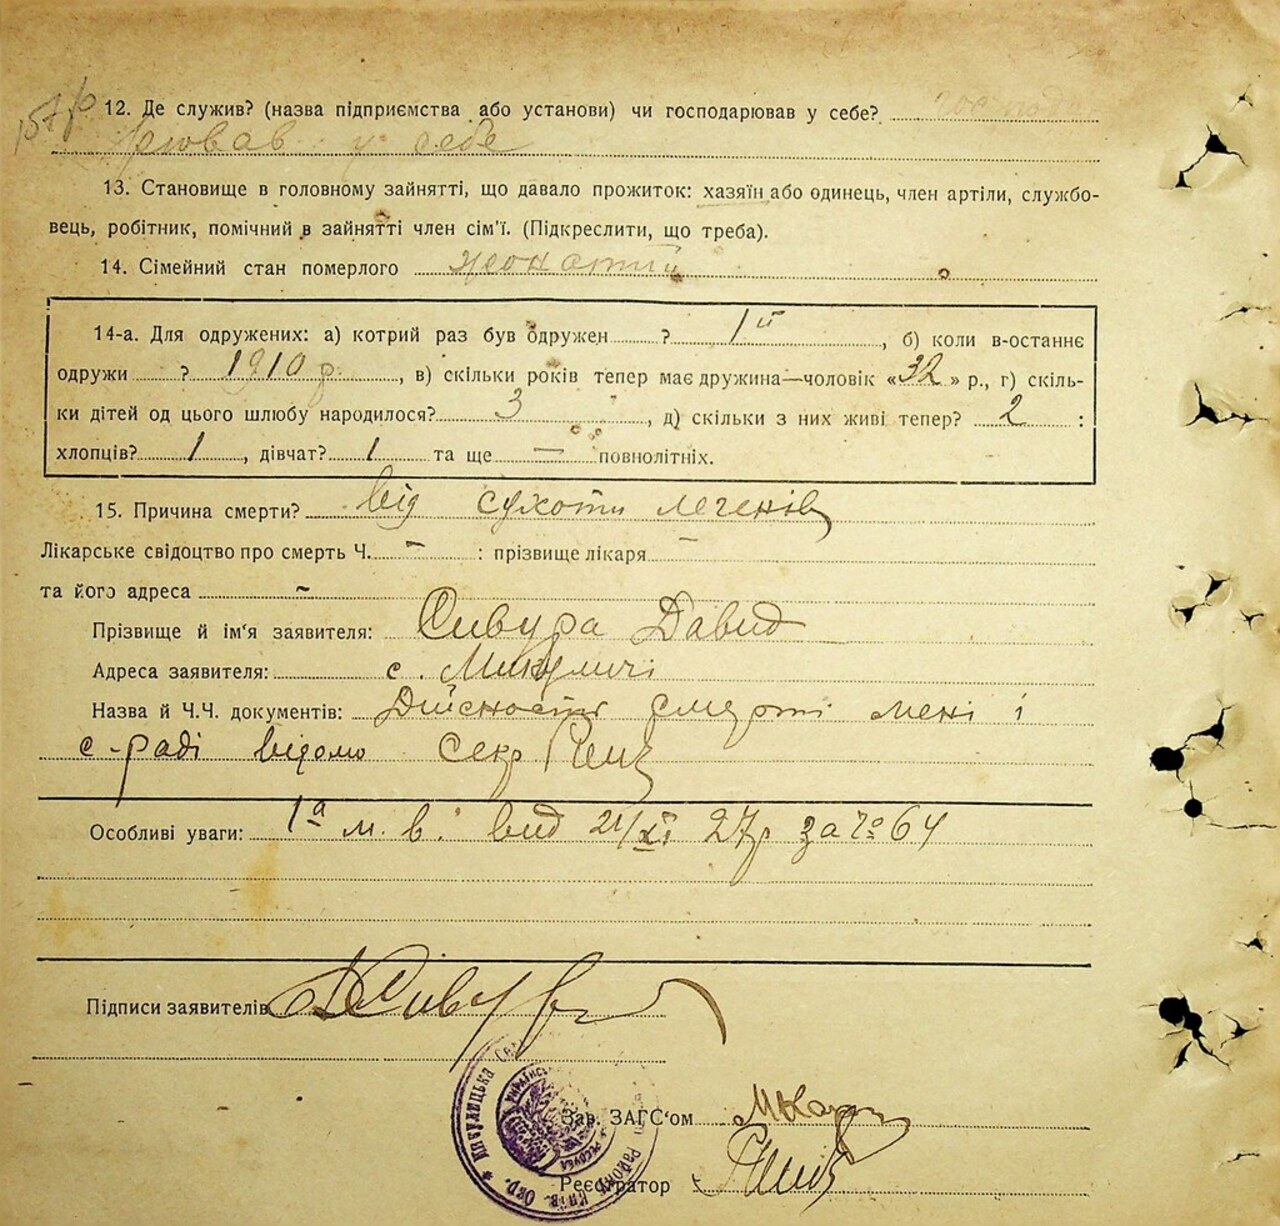 12. Де служив? (назва підприємства або установи) чи господарював у себе? господа
рював у себе
13. Становище в головному зайнятті, що давало прожиток: хазяїн або одинець, член артіли, службо-
вець, робітник, помічний в зайнятті член сім'ї. (Підкреслити, що треба).
14. Сімейний стан померлого жонатий
14-а. Для одружених: а) котрий раз був одружен ? 1й, б) коли в-останнє
одружи ? 1910 р., в) скільки років тепер має дружина—чоловік «32» р., г) скіль-
ки дітей од цього шлюбу народилося? 3, д) скільки з них живі тепер? 2 :
хлопців? 1, дівчат? 1 та ще — повнолітніх.
15. Причина смерти? від сухоти легенів
Лікарське свідоцтво про смерть Ч. – : прізвище лікаря –
та його адреса ~
Прізвище й ім'я заявителя: Сивура Давид
Адреса заявителя: с. Микуличі
Назва й Ч.Ч. документів: Дійсность смерті мені і
с-раді відомо Секр
Особливі уваги: 1а м. в. вид 21/XI 27р за № 64
Підписи заявителів ДСивура
Зав. ЗАГС'ом
Реєстратор